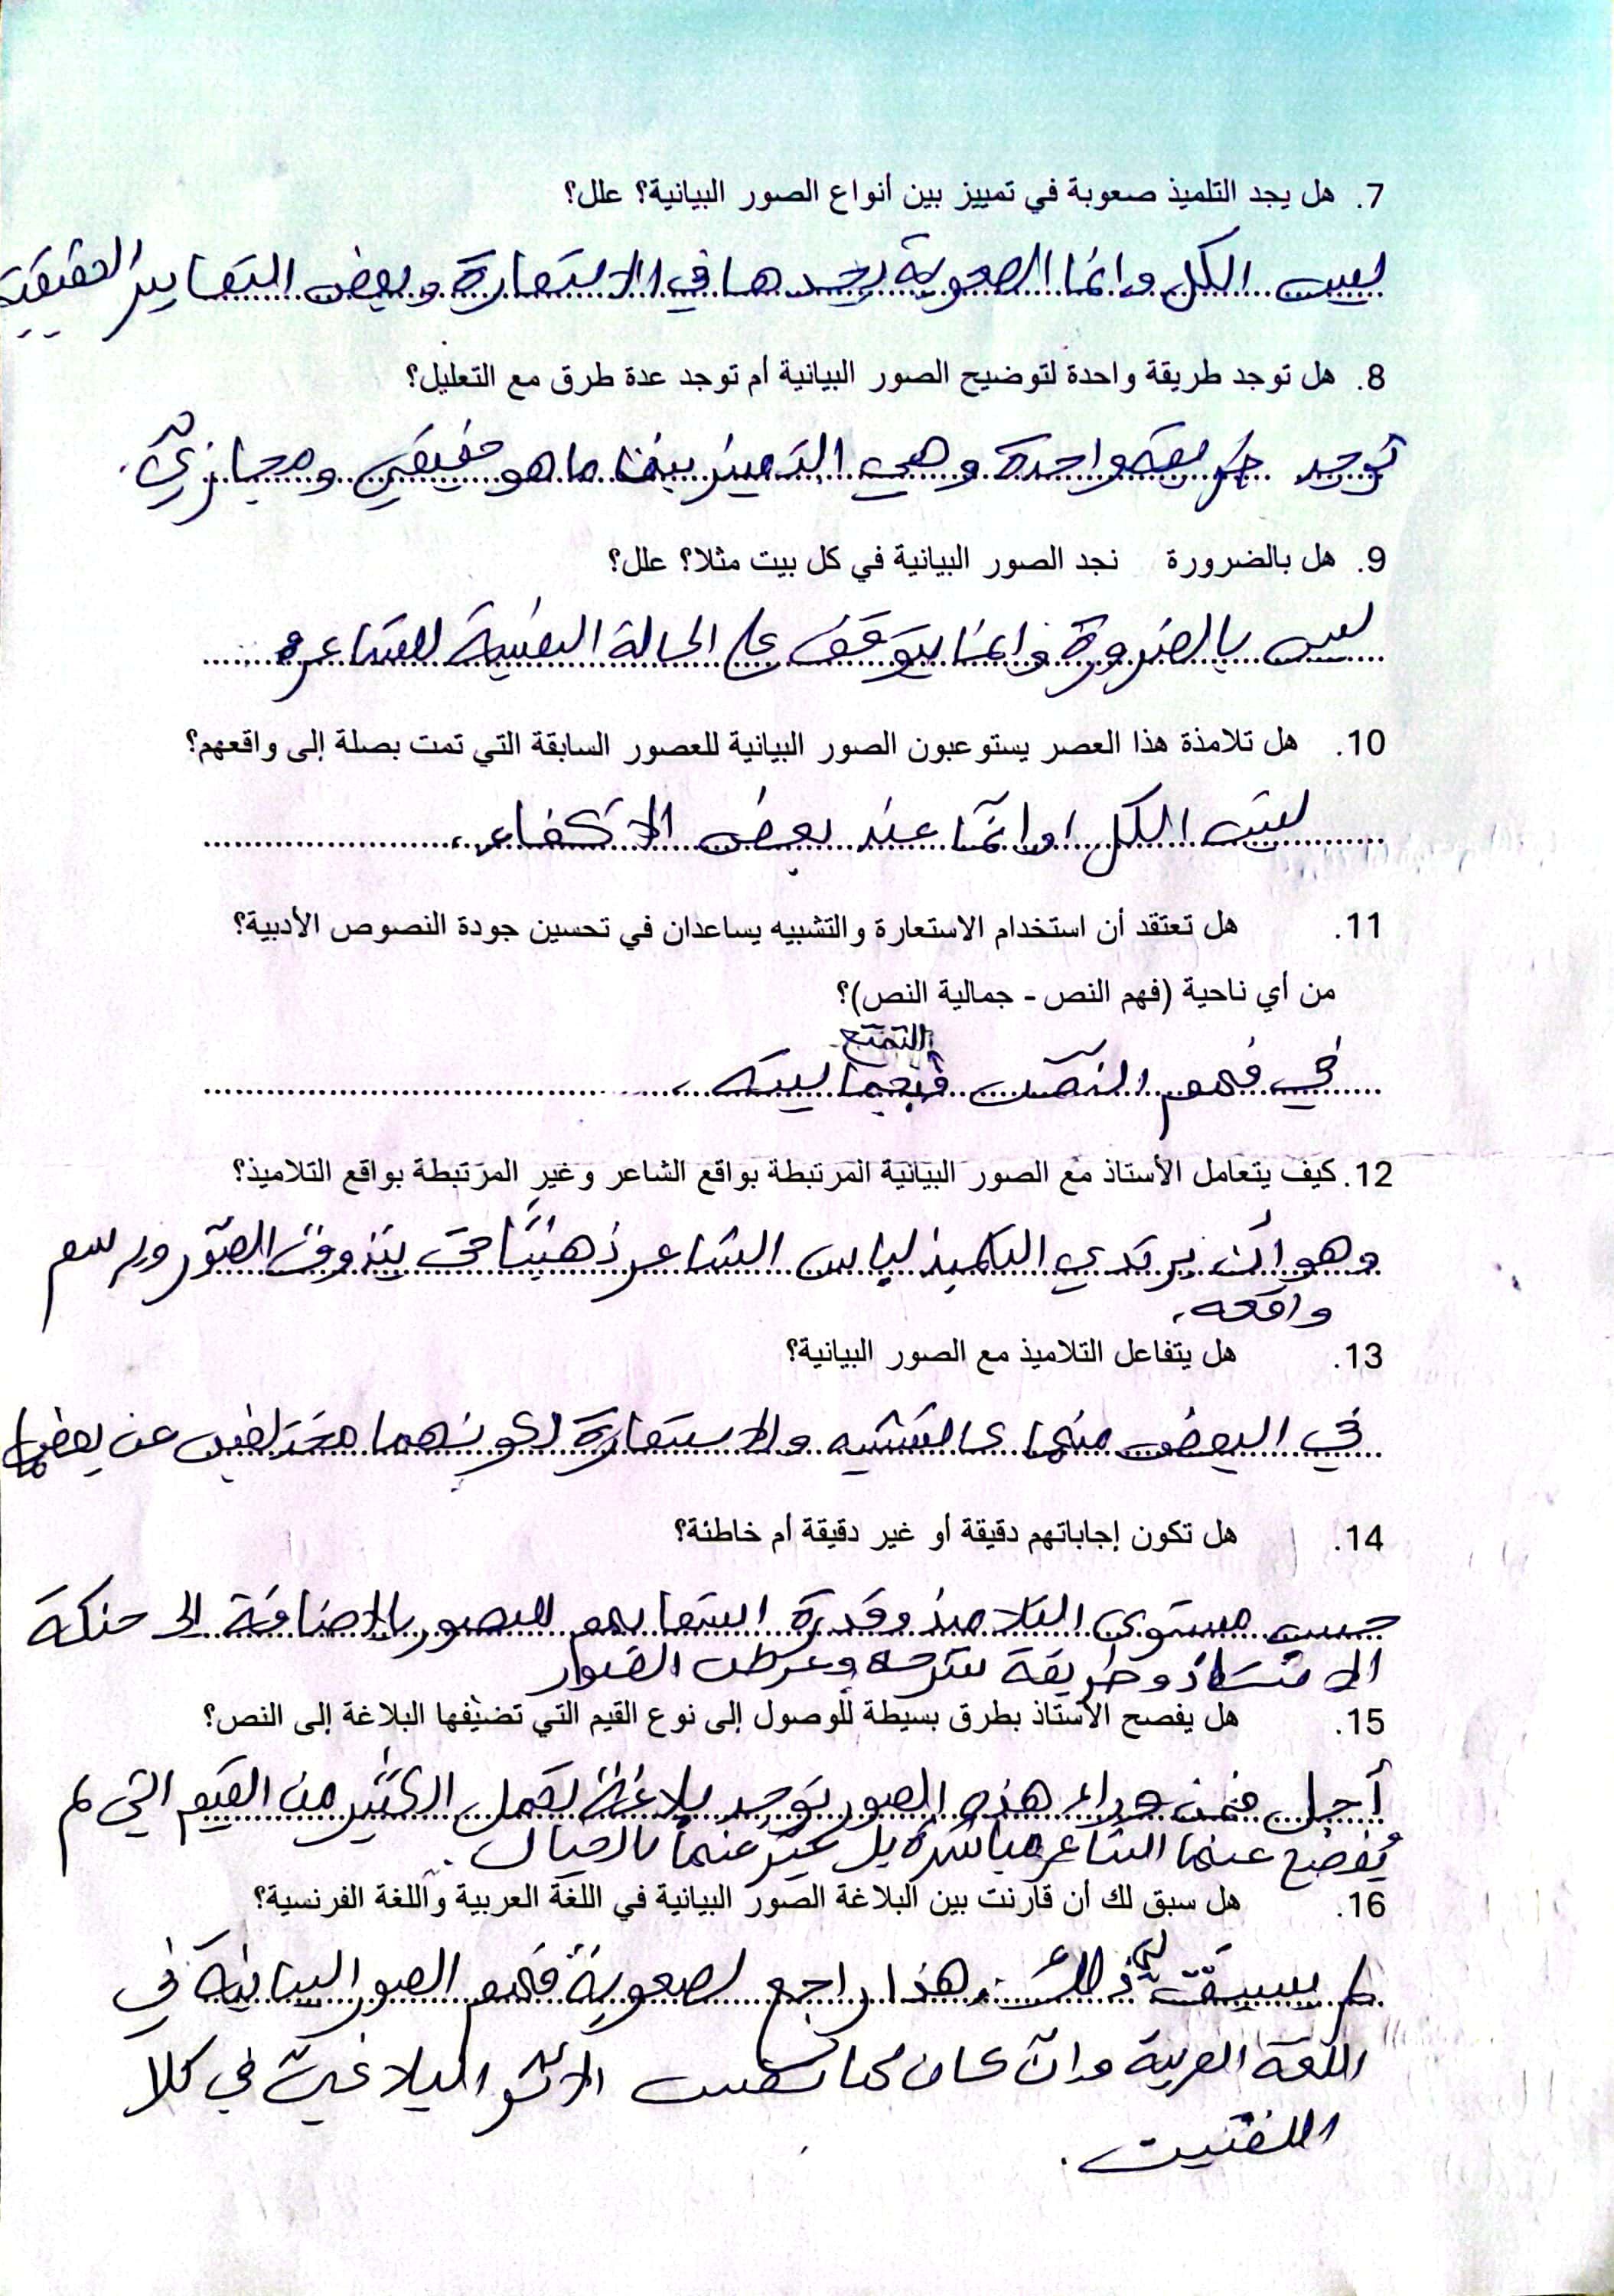 7. هل يجد التلميذ صعوبة في تمييز بين أنواع الصور البيانية؟ علل؟
ليس الكل وانما الصعوبة يجدها في الاستعارة وبعض التعابير الحقيقية
8. هل توجد طريقة واحدة لتوضيح الصور البيانية أم توجد عدة طرق مع التعليل؟
توجد طريقة واحدة وهي التمييز بين ما هو حقيقي ومجازيّ.
9. هل بالضرورة نجد الصور البيانية في كل بيت مثلا؟ علل؟
ليس بالضرورة وانما يتوقف على الحالة النفسية للشاعر
10. هل تلامذة هذا العصر يستوعبون الصور البيانية للعصور السابقة التي تمت بصلة إلى واقعهم؟
ليس الكل وانمّا عند بعض الاكفاء.
11. هل تعتقد أن استخدام الاستعارة والتشبيه يساعدان في تحسين جودة النصوص الأدبية؟
من أي ناحية (فهم النص - جمالية النص)؟
التمتع
في فهم النصّ بجماليته.
12. كيف يتعامل الأستاذ مع الصور البيانية المرتبطة بواقع الشاعر وغير المرتبطة بواقع التلاميذ؟
وهو أن يرتدي التلميذ لباس الشاعر ذهنيًّا حتى يتذوق الصّور ورسم
واقعه.
13. هل يتفاعل التلاميذ مع الصور البيانية؟
في البعض منها كالتشبيه والاستعارة لكونهما مختلفين عن بعضهما
14. هل تكون إجاباتهم دقيقة أو غير دقيقة أم خاطئة؟
حسب مستوى التلاميذ وقدرة استعابهم للصور بالاضافة إلى حنكة
الاستاذ وطريقة شرحه وعرض الصور
15. هل يفصح الأستاذ بطرق بسيطة للوصول إلى نوع القيم التي تضيفها البلاغة إلى النص؟
أجل فمن وراء هذه الصور توجد بلاغة تحمل الكثير من القيم التي لم
يُفصح عنها الشاعر مباشرة بل عبّر عنها بالخيال.
16. هل سبق لك أن قارنت بين البلاغة الصور البيانية في اللغة العربية واللغة الفرنسية؟
لم يسبق لي ذلك وهذا راجع لصعوبة فهم الصور البيانية في
اللغة العربية وان كان لها نفس الاثر البلاغيّ في كلا
اللغتين.